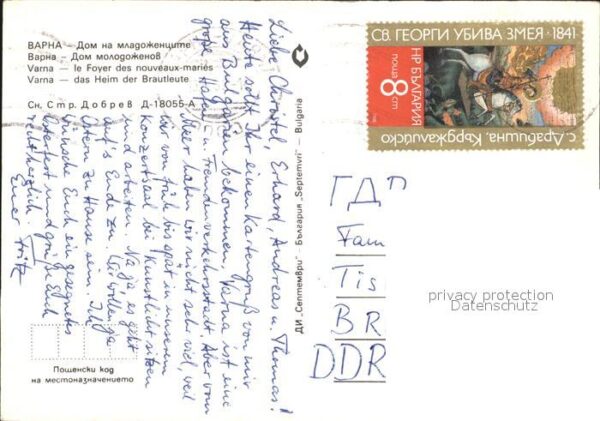 ВАРНА — Дом на младоженците
Варна — Дом молодоженов
Varna — le Foyer des nouveaux-mariés
Varna — das Heim der Brautleute
Сн. Стр. Добрев Д-18055-А
Liebe Christel, Erhard, Andreas u. Thomas!
Heute sollt Ihr einen Kartengruß von mir
aus Bulgarien bekommen. Varna ist eine
große Hafen u. Fremdenverkehrsstadt. Aber vom
Meer haben wir nicht sehr viel, weil
wir von früh bis spät in unserem
Konzertsaal bei Kunstlicht sitzen
und arbeiten. Na ja es geht
auf's Ende zu. Wir wollen ja
Ostern zu Hause sein. Ich
wünsche Euch ein gesegnetes
Osterfest und grüße Euch
recht herzlich
Euer Fritz
Пощенски код
на местоназначението
ДИ „Септември" — България „Septemvri" — Bulgaria
СВ. ГЕОРГИ УБИВА ЗМЕЯ · 1841
НР БЪЛГАРИЯ
поща 8 ст
с. Драбишна, Кърджалийско
ГДР
Fam
Tis
BR
DDR
privacy protection
Datenschutz